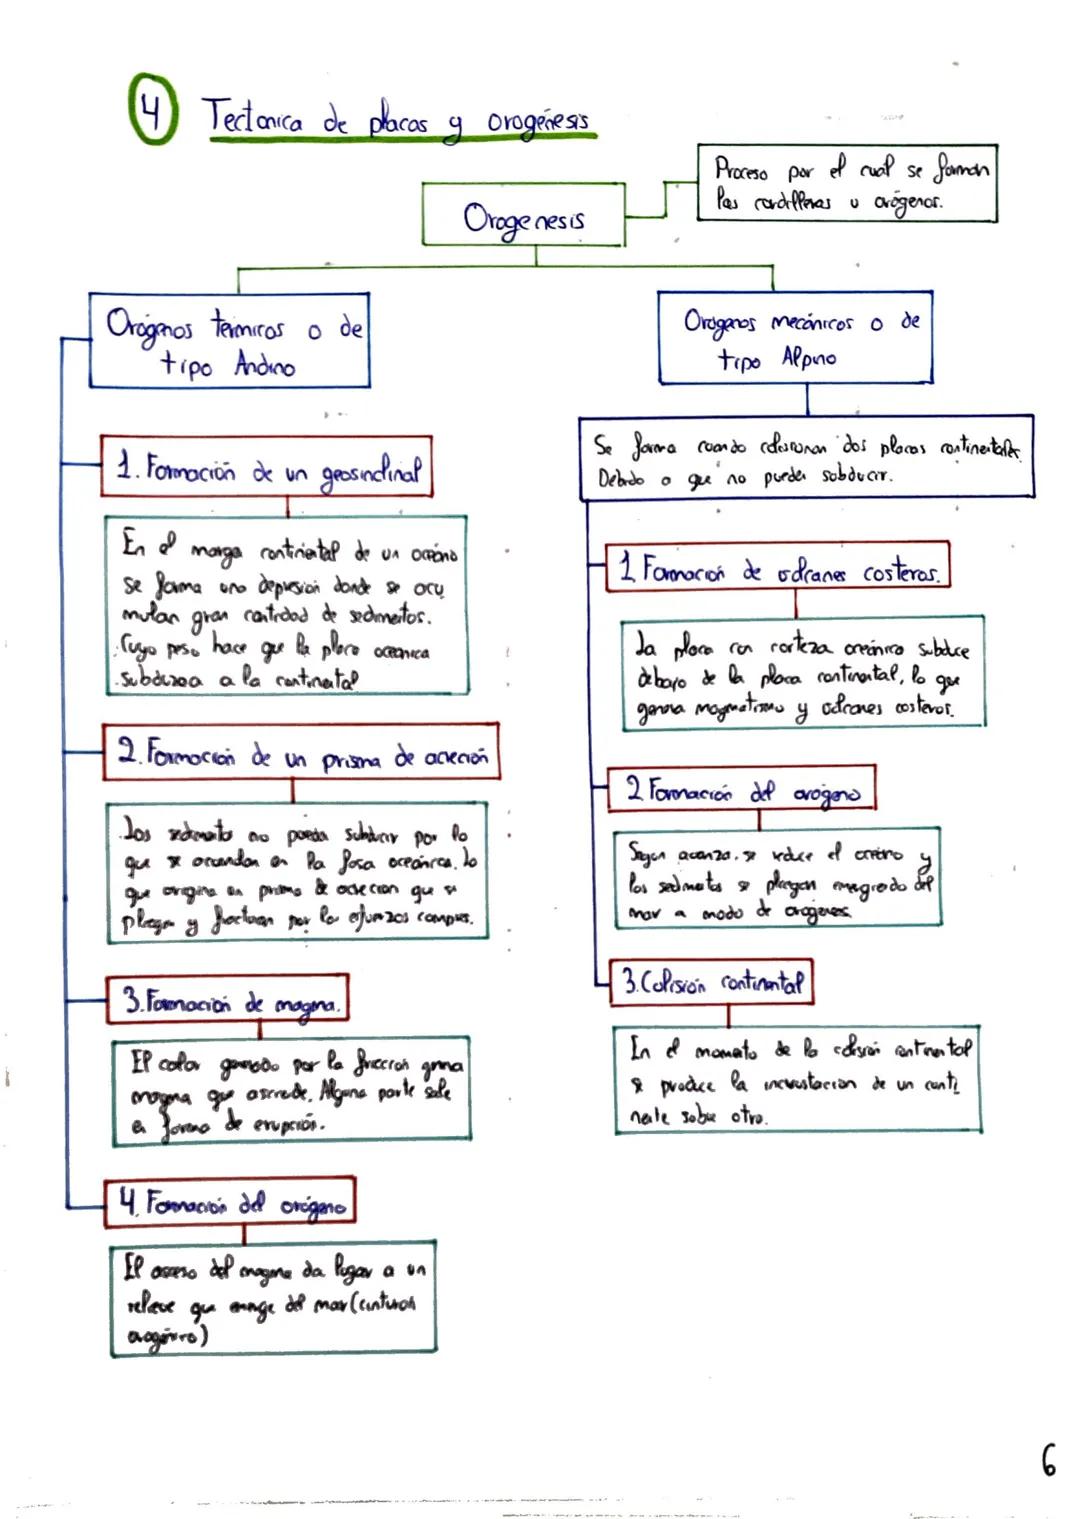 4 Tectonica de placas y orogénesis
Proceso por el cual se forman
las cordilleras u orógenos.
Orogenesis
Orógenos térmicos o de
tipo Andino
1. Formación de un geosinclinal
En el margen continental de un océano
se forma una depresión donde se acu
mulan gran cantidad de sedimentos.
Cuyo peso hace que la placa oceanica
subduzca a la continental
2. Formación de un prisma de acreción
Los sedimentos no pueden subducir por lo
que se acumulan en la fosa oceánica. Lo
que origina un prisma de acrecion que se
pliegan y fracturan por los esfuerzos compres.
3. Formación de magma.
El calor generado por la fricción genera
magma que asciende. Alguna parte sale
en forma de erupción.
4. Formación del orógeno
El ascenso del magma da lugar a un
relieve que emerge del mar (cinturón
orogénico)
Orogenos mecánicos o de
tipo Alpino
Se forma cuando colisionan dos placas continentales.
Debido a que no pueden subducir.
1 Formación de volcanes costeros.
La placa con corteza oceánica subduce
debajo de la placa continental, lo que
genera magmatismo y volcanes costeros.
2 Formación del orógeno
Segun avanza, se reduce el oceano y
los sedimentos se pliegan emergiendo del
mar a modo de orogenes.
3. Colisión continental
En el momento de la colisión continental
se produce la incrustacion de un conti
nente sobre otro.
6